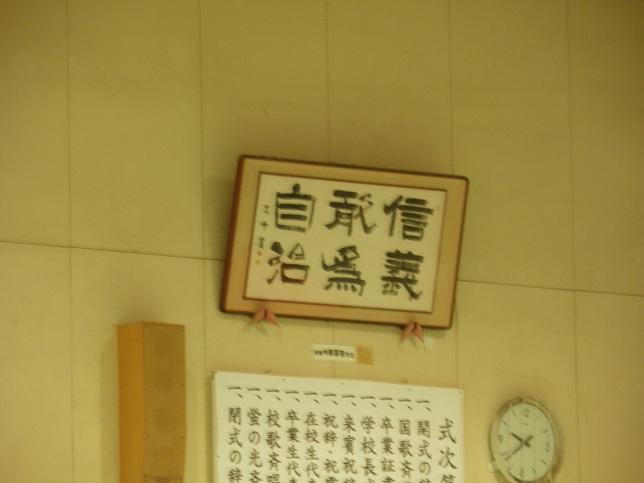 信義
敢為
自治
式次第
一、開式の辞
一、国歌斉
一、卒業証書
一、学校長
一、来賓祝
一、祝辞・祝電
一、在校生代
一、卒業生代
一、校歌斉唱
一、螢の光斉
一、閉式の辞